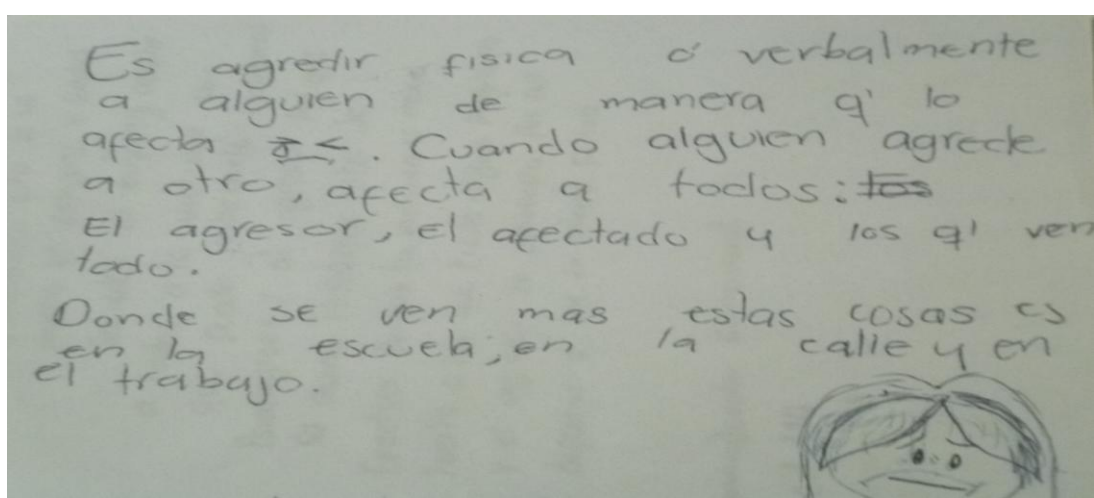 Es agredir fisica ó verbalmente
a alguien de manera q' lo
afecta. Cuando alguien agrede
a otro, afecta a todos:
El agresor, el afectado y los q' ven
todo.
Donde se ven mas estas cosas es
en la escuela, en la calle y en
el trabajo.